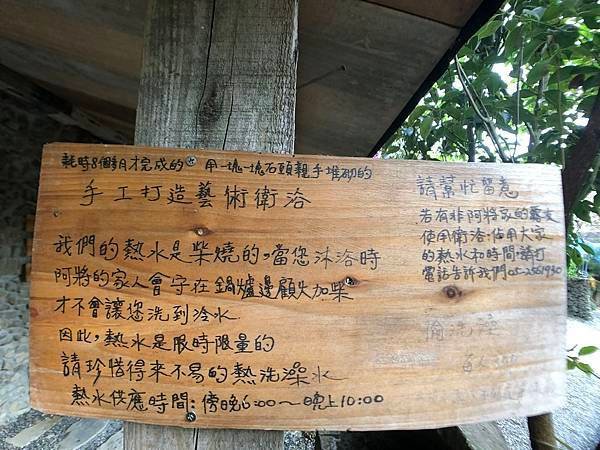 耗時8個月才完成的 用一塊一塊石頭親手堆砌的
手工打造藝術衛浴
我們的熱水是柴燒的,當您沐浴時
阿將的家人會守在鍋爐邊顧火加柴
才不會讓您洗到冷水
因此,熱水是限時限量的
請珍惜得來不易的熱洗澡水
熱水供應時間:傍晚6:00~晚上10:00
請幫忙留意
若有非阿將家的
使用衛浴,佔用大家
的熱水和時間,請打
電話告訴我們